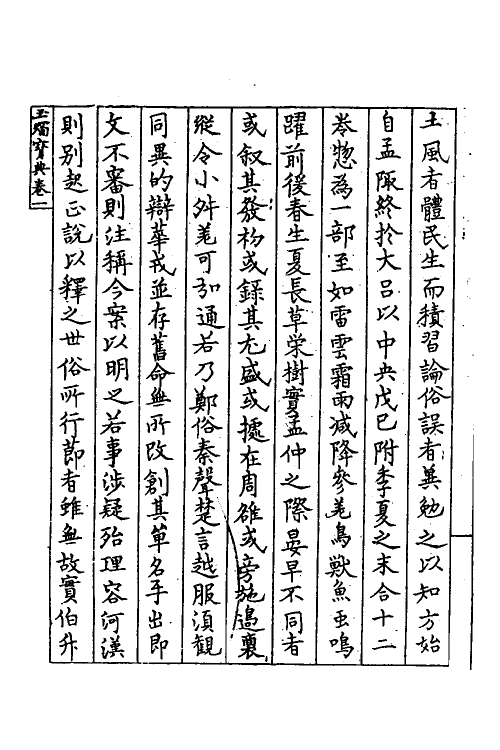 土風者體民生而積習論俗誤者兾勉之以知方始
自孟陬終於大吕以中央戊巳附季夏之末合十二
卷惣為一部至如雷雲霜雨减降參差鳥獸魚虫鳴
躍前後春生夏長草荣樹實孟仲之際晏早不同者
或叙其發初或録其尤盛或據在周雒或旁施邉裔
縱令小舛差可引通若乃鄭俗秦聲楚言越服須觀
同異的辯華戎並存舊命無所改創其單名乎出即
文不審則注稱今案以明之若事涉疑殆理容河漢
則别起正説以釋之世俗所行節者雖無故實伯升
玉燭寶典卷一